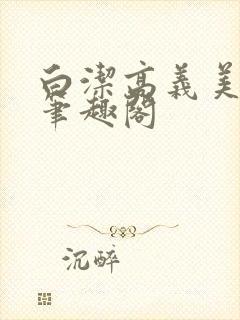 白潔高義美
筆趣閣
沉醉